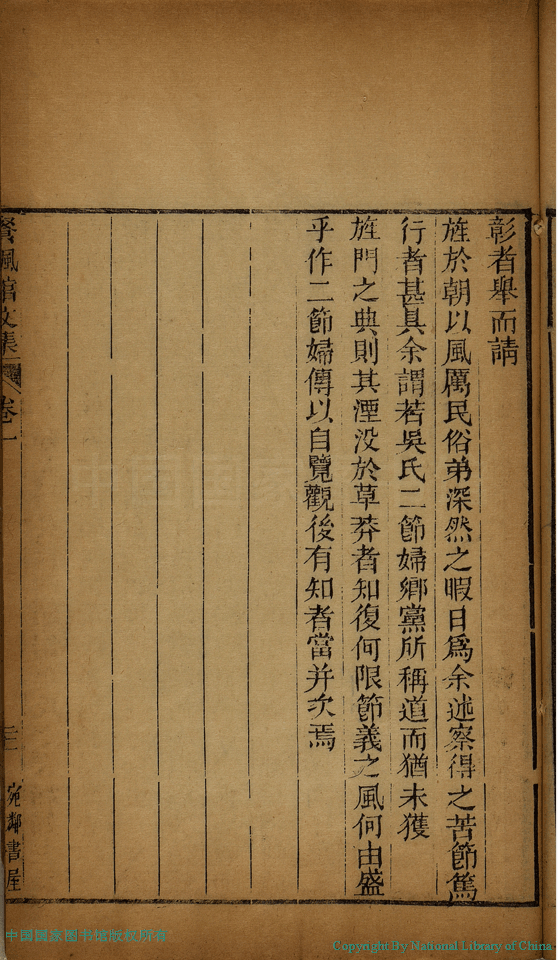 彰者舉而請
旌於朝以風厲民俗弟深然之暇日爲余述察得之苦節篤
行者甚具余謂若吳氏二節婦鄉黨所稱道而猶未獲
旌門之典則其湮没於草莽者知復何限節義之風何由盛
乎作二節婦傳以自覽觀後有知者當并次焉
風館文集
卷一
宛鄰書屋
中国国家图书馆版权所有
Copyright By National Library of China